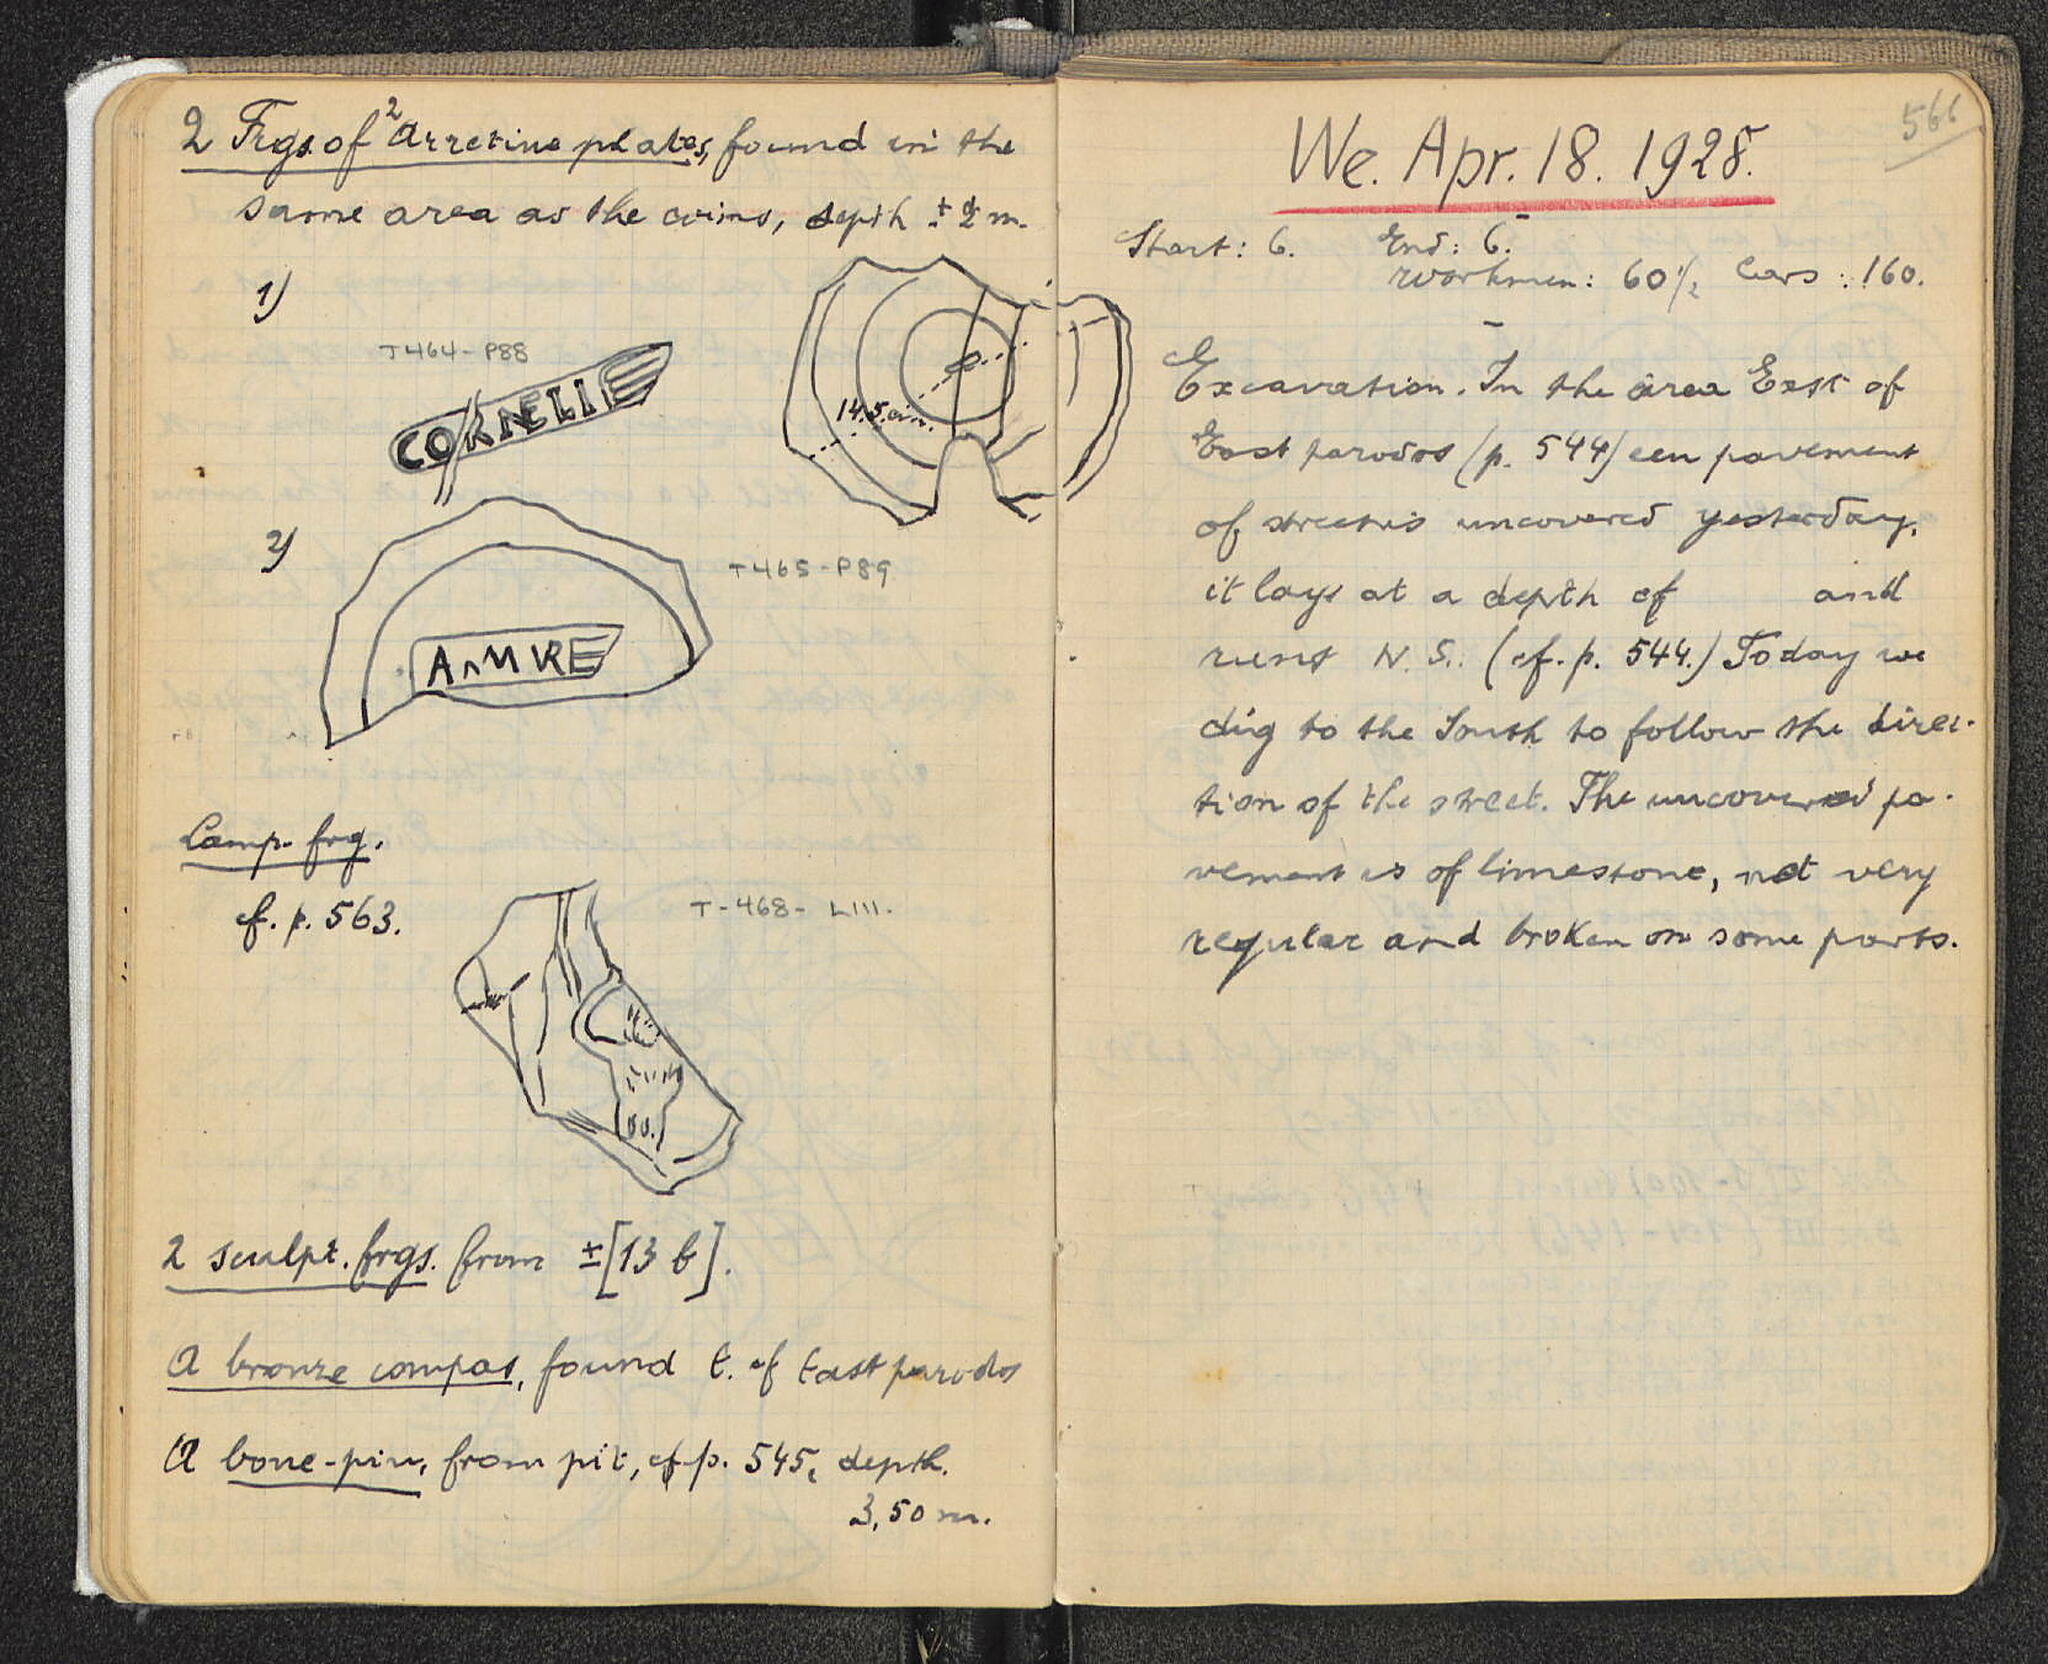 2 Frgs. of 2 Arretine plates, found in the
same area as the coins, depth ± 2 m.
1)
T464-P88
CORNELI
14.5 cm.
2)
T465-P89
AnMRE
Lamp. frg.
cf. p. 563.
T-468- L111.
2 sculpt. frgs. from ±[13 b].
A bronze compas, found E. of East parodos
A bone-pin, from pit, cf p. 545, depth.
3,50 m.
566
We. Apr. 18. 1928.
Start: 6. End: 6.
Workmen: 60½ Cars: 160.
Excavation. In the area East of
East parodos (p. 544) een pavement
of street is uncovered yesterday.
it lays at a depth of and
runs N. S.. (cf. p. 544.) Today we
dig to the South to follow the direc-
tion of the street. The uncovered pa-
vement is of limestone, not very
regular and broken on some parts.